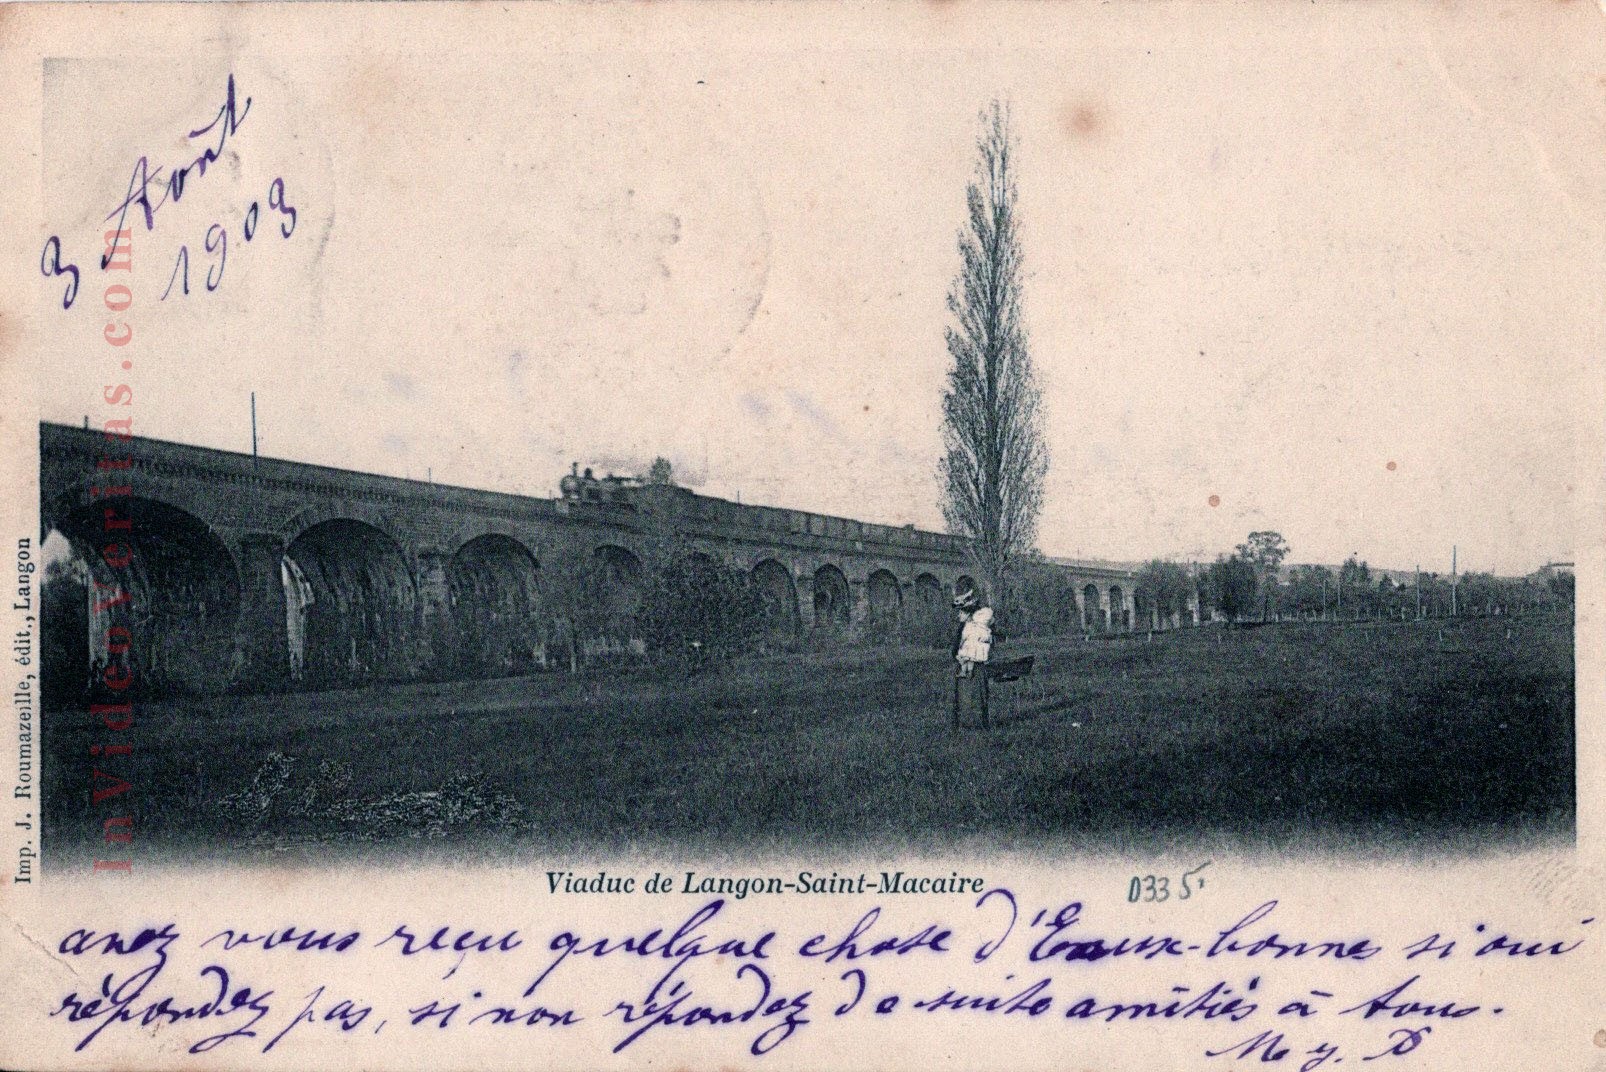 3 Août
1903
In Video Veritas.com
Imp. J. Roumazeille, édit., Langon
Viaduc de Langon-Saint-Macaire
0335
avez vous reçu quelque chose d'Eaux-bonnes si oui
répondez pas, si non répondez de suite amitiés à tous.
M y. D